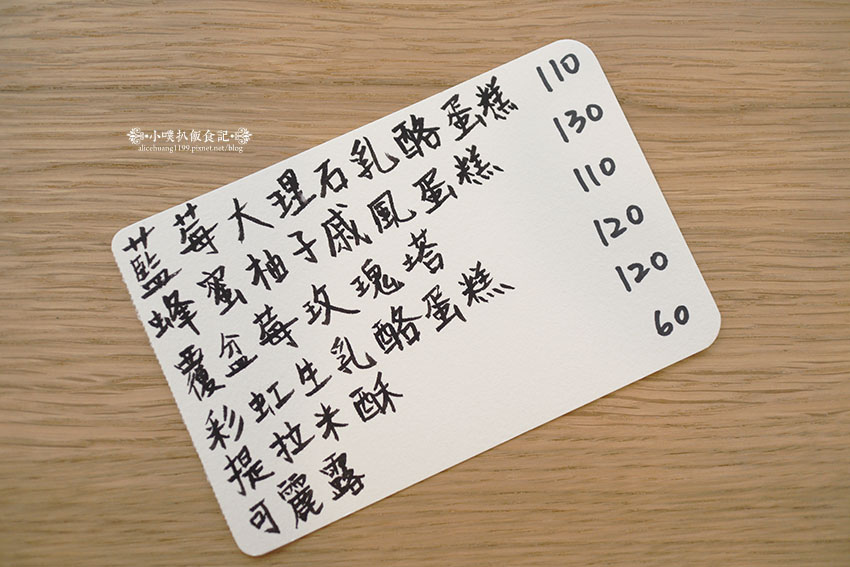 •小噗扒飯食記•
alicehuang1199.pixnet.net/blog
藍莓大理石乳酪蛋糕 110
蜂蜜柚子戚風蛋糕 130
覆盆莓玫瑰塔 110
彩虹生乳酪蛋糕 120
提拉米酥 120
可麗露 60